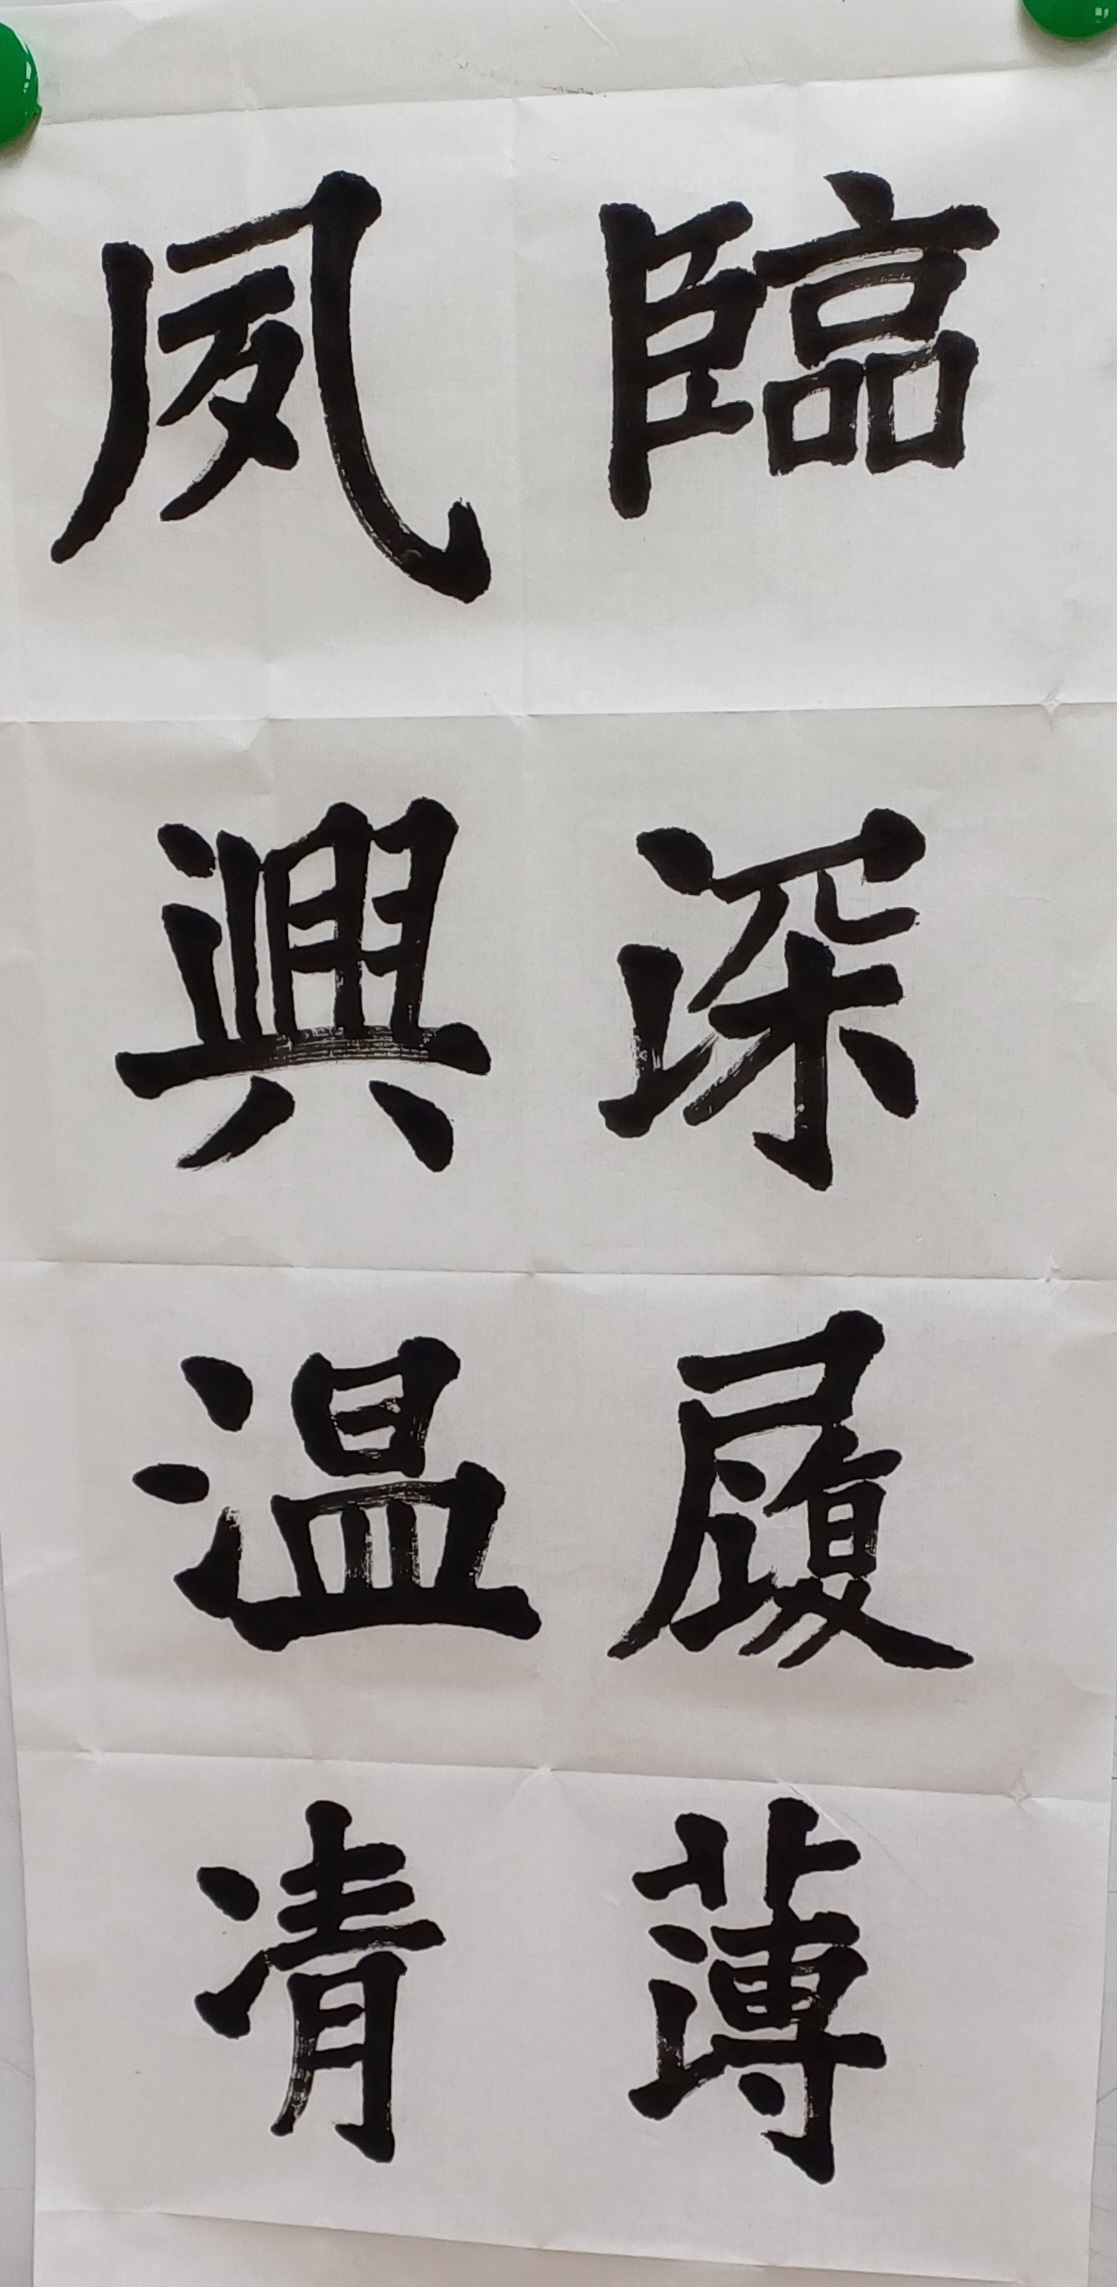 臨深履薄
夙興温凊